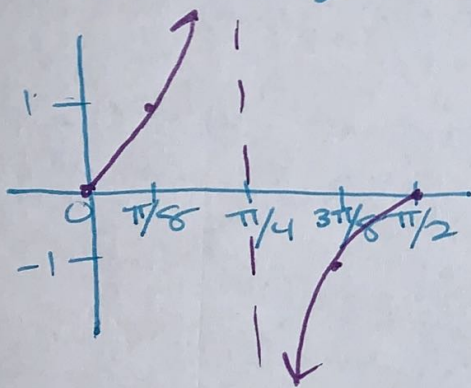 1
0 π/8 π/4 3π/8 π/2
-1